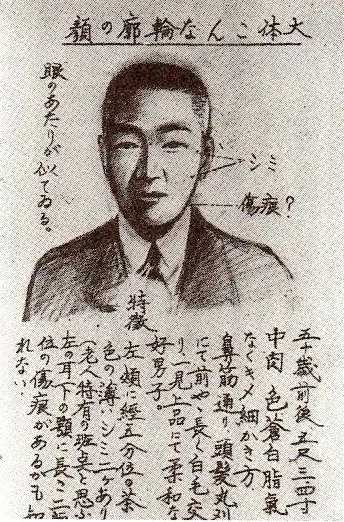 大体こんな輪廓の顔
眼のあたりが似てゐる。
シミ
傷痕?
特徴
五十歳前後五尺三四寸
中肉 色蒼白脂氣
なくキメ細かき方
鼻筋通り頭髪丸刈
にて前やゝ長く白毛交
り、一見上品にて柔和な
好男子。
左頬に經五分位の茶
色の薄いシミ二ケあり
(老人特有の斑点と思ふ
左の耳下の顎に長さ二
位の傷痕があるかも知
れない。